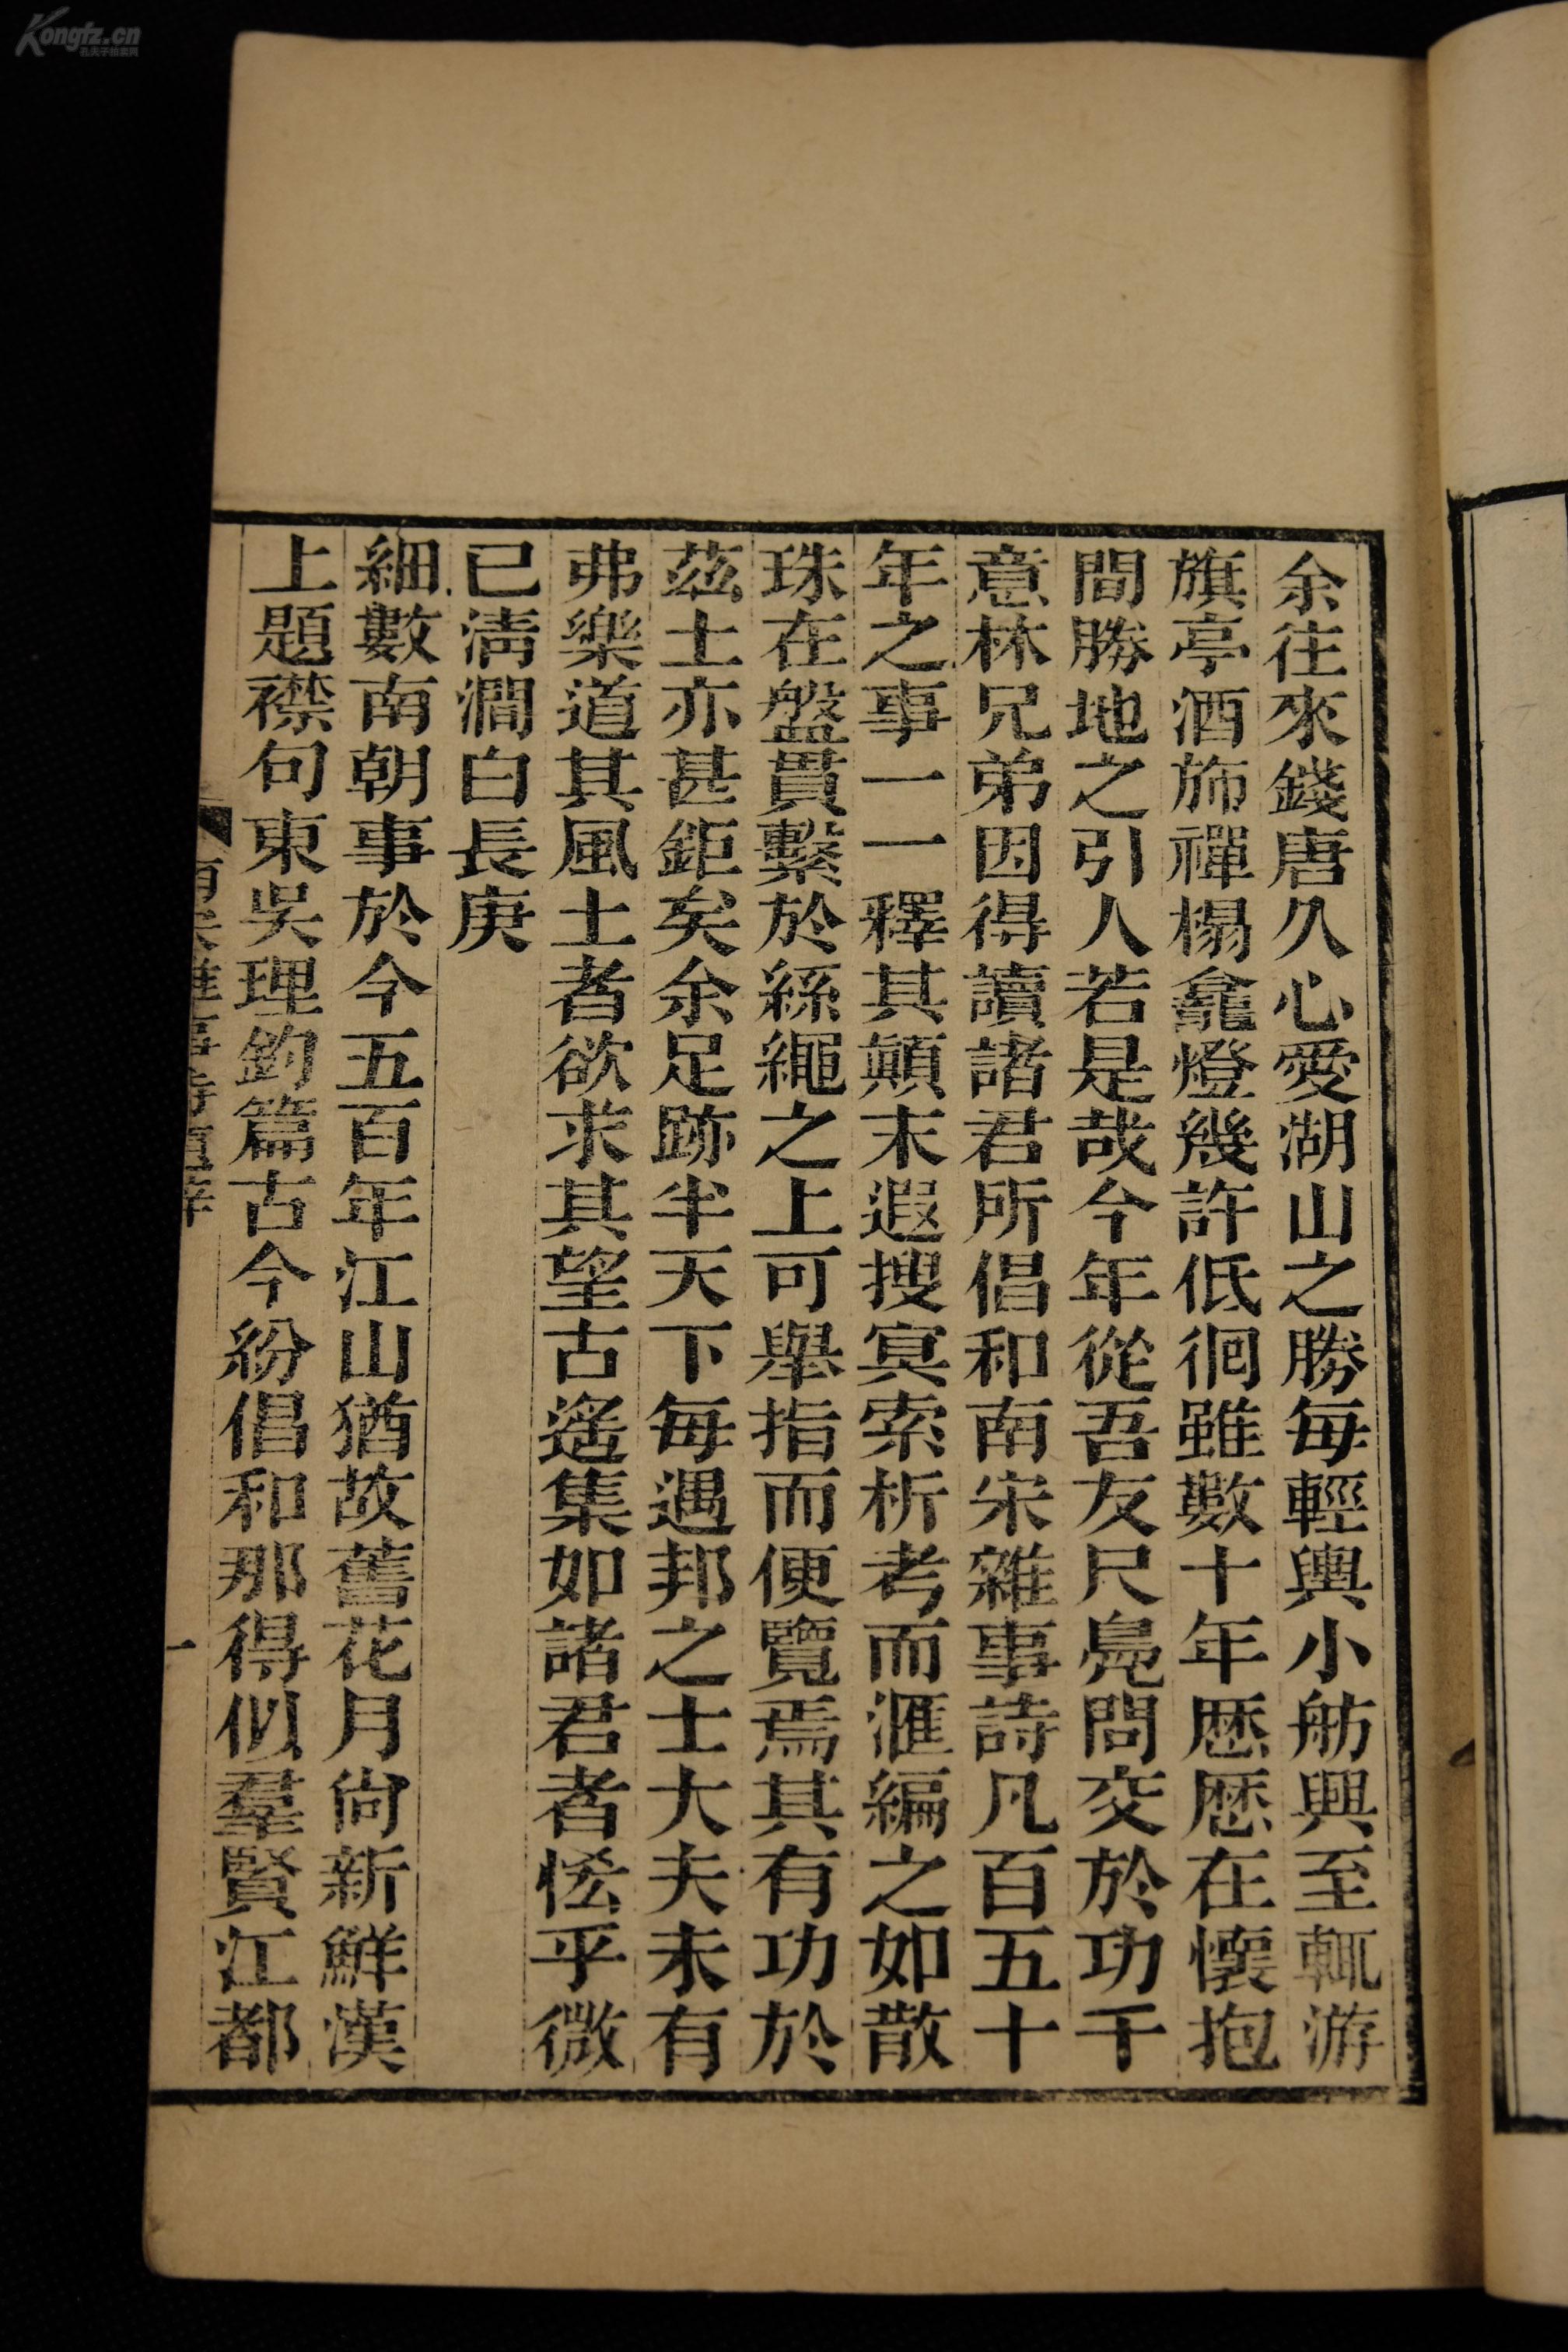 余往來錢唐久心愛湖山之勝每輕輿小舫興至輒游
旗亭酒斾禪榻龕燈幾許低徊雖數十年歴歴在懷抱
間勝地之引人若是哉今年從吾友尺鳧問交於功千
意林兄弟因得讀諸君所倡和南宋雜事詩凡百五十
年之事一一釋其顛末遐搜冥索析考而滙編之如散
珠在盤貫繫於絲繩之上可舉指而便覽焉其有功於
茲土亦甚鉅矣余足跡半天下每遇邦之士大夫未有
弗樂道其風土者欲求其望古遙集如諸君者恡乎微
已淸澗白長庚
細數南朝事於今五百年江山猶故舊花月尙新鮮漢
上題襟句東吳理釣篇古今紛倡和那得似羣賢江都
一
Kongfz.cn
孔夫子拍卖网